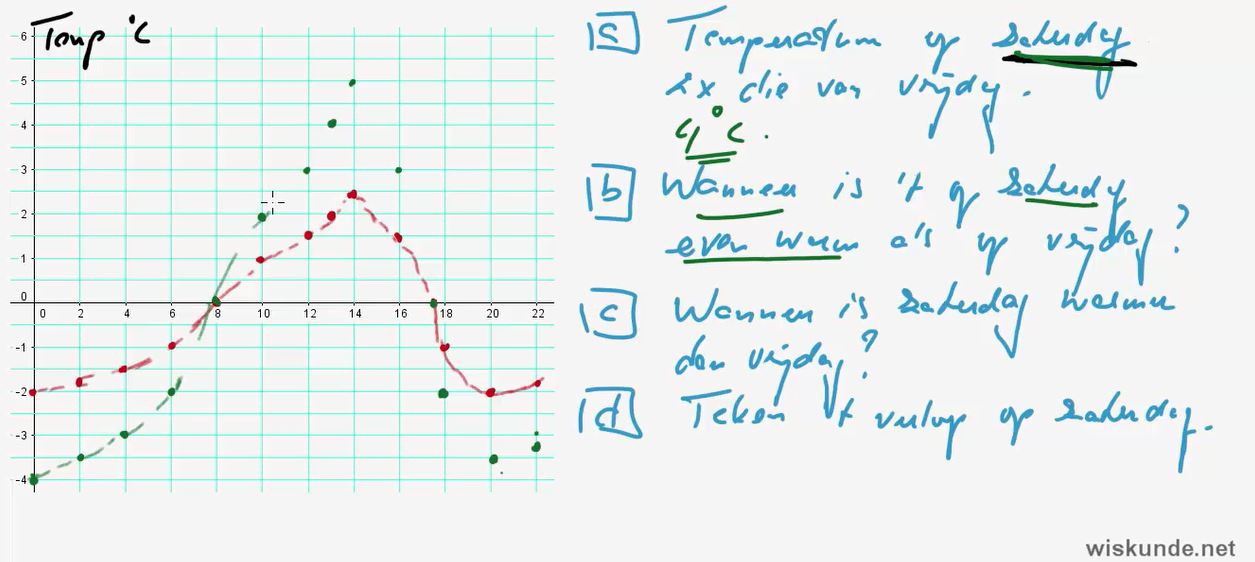 Temp °C
6
5
4
3
2
1
0
0 2 4 6 8 10 12 14 16 18 20 22
-1
-2
-3
-4
a Temperatuur op zaterdag
2x die van vrijdag.
4°C.
b Wanneer is 't op zaterdag
even warm als op vrijdag?
c Wanneer is zaterdag warmer
dan vrijdag?
d Teken 't verloop op zaterdag.
wiskunde.net